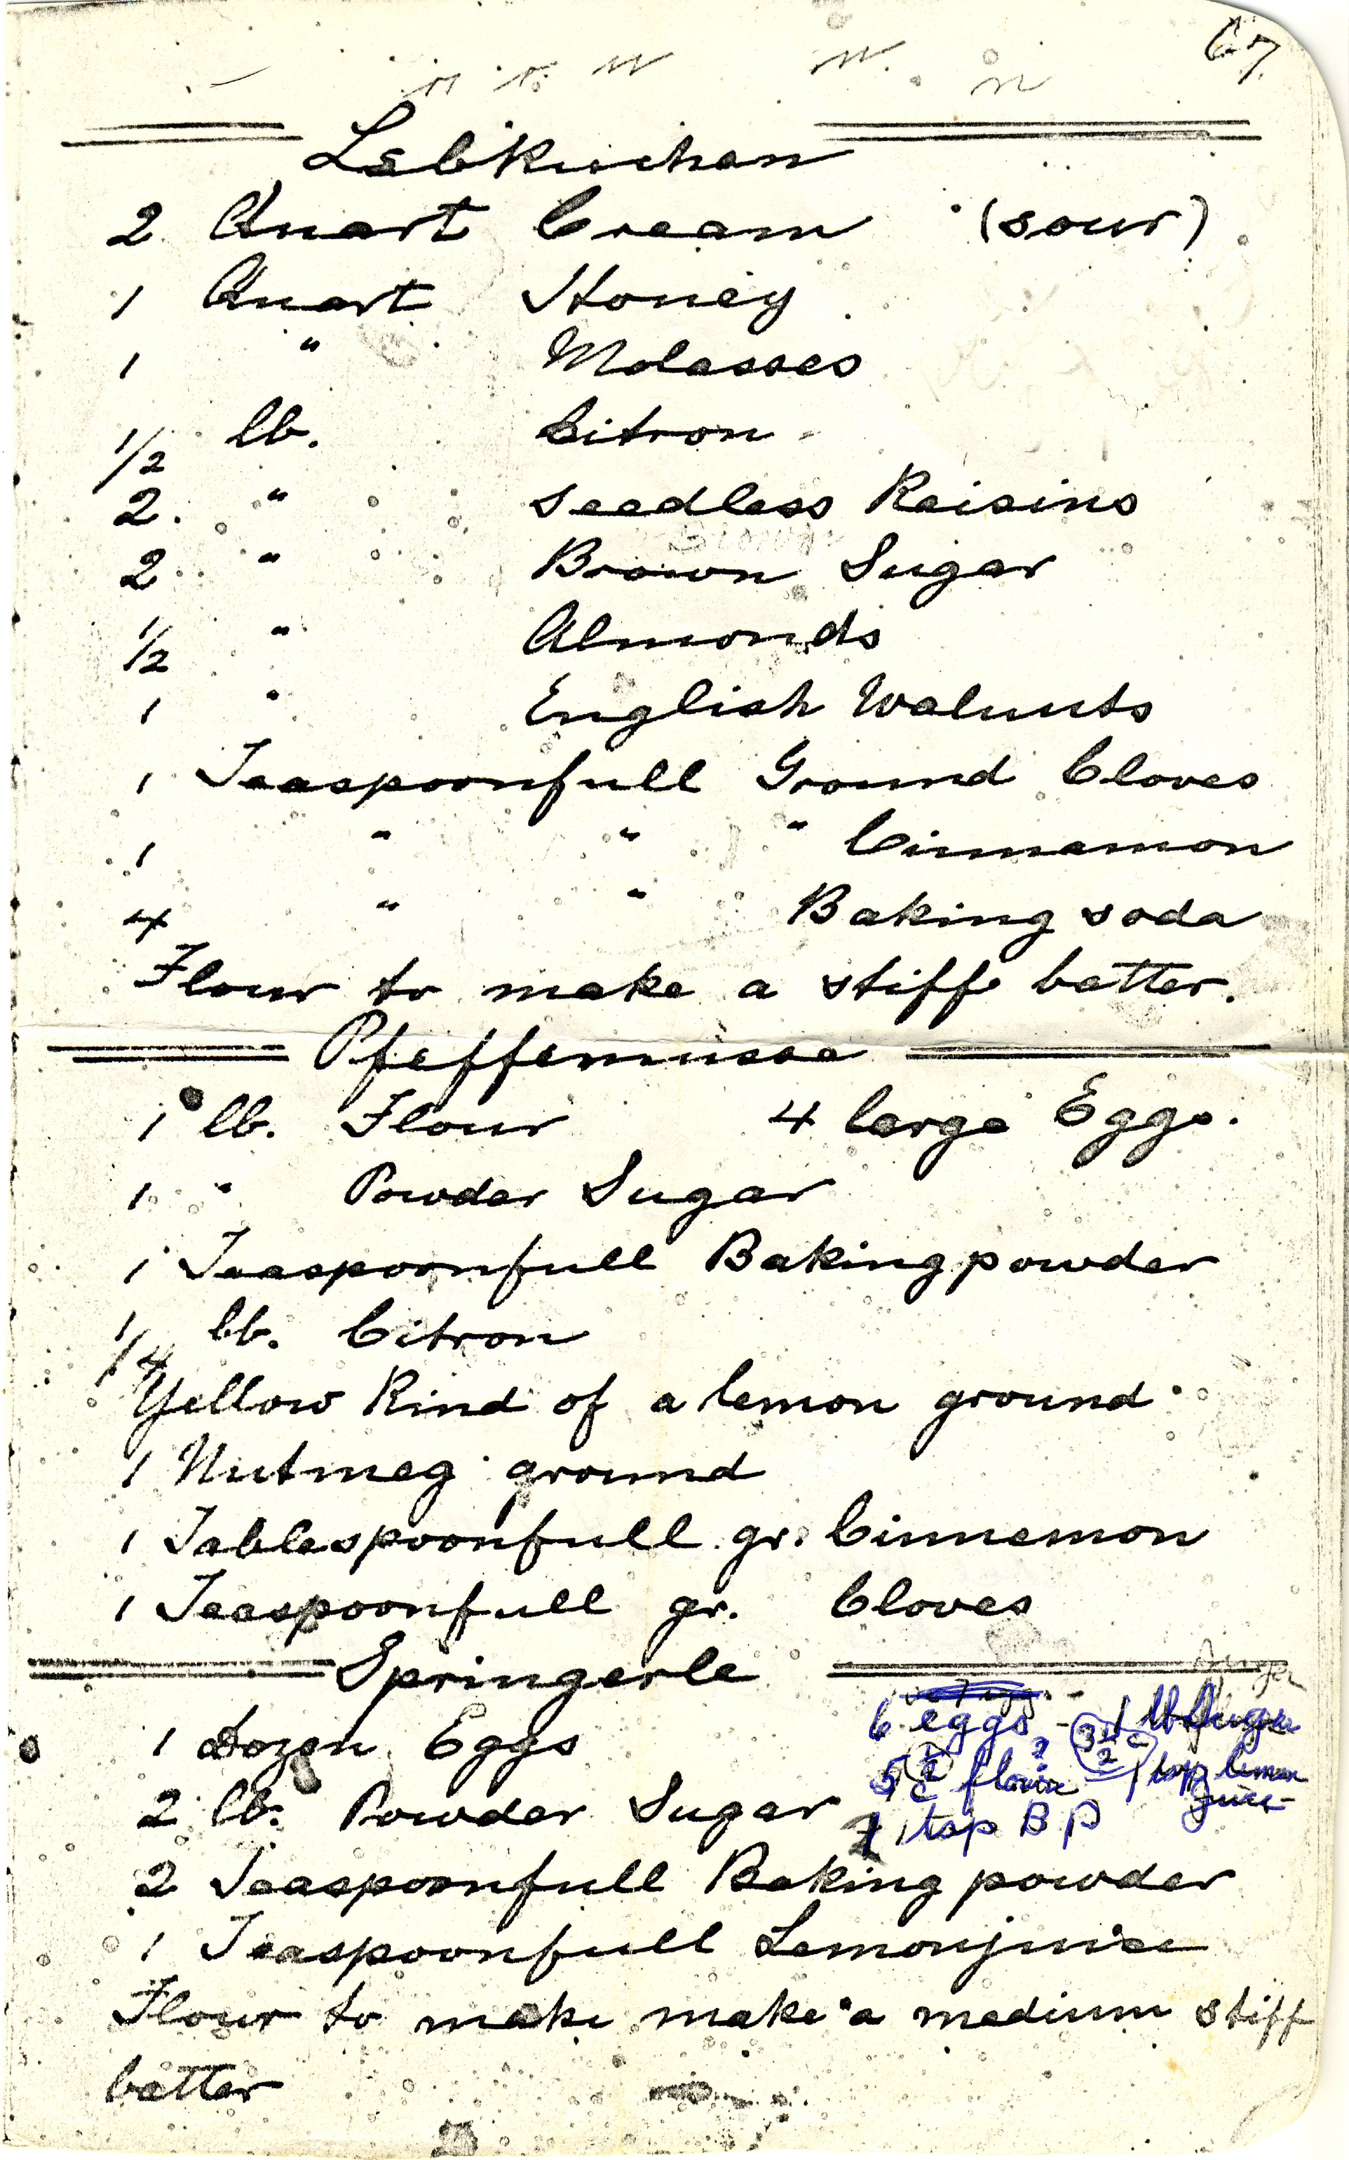 67
Lebkuchen
2 Quart Cream (sour)
1 Quart Honey
1 " Molasses
1/2 lb. Citron
2 " seedless Raisins
2 " Brown Sugar
1/2 " Almonds
1 " English Walnuts
1 Teaspoonfull Ground Cloves
1 " " " Cinnamon
4 " " Baking soda
Flour to make a stiff batter.
Pfeffernusse
1 lb. Flour 4 large Eggs.
1 " Powder Sugar
1 Teaspoonfull Bakingpowder
1/4 lb. Citron
Yellow Rind of a lemon ground
1 Nutmeg ground
1 Tablespoonfull gr. Cinnemon
1 Teaspoonfull gr. Cloves
Springerle
6 eggs - 1 lb sugar
5 1/2 c flour 3 1/2 c 1 tsp lemon juice
1 tsp B P
1 dozen Eggs
2 lb. Powder Sugar
2 Teaspoonfull Baking powder
1 Teaspoonfull Lemonjuice
Flour to make make a medium stiff
batter